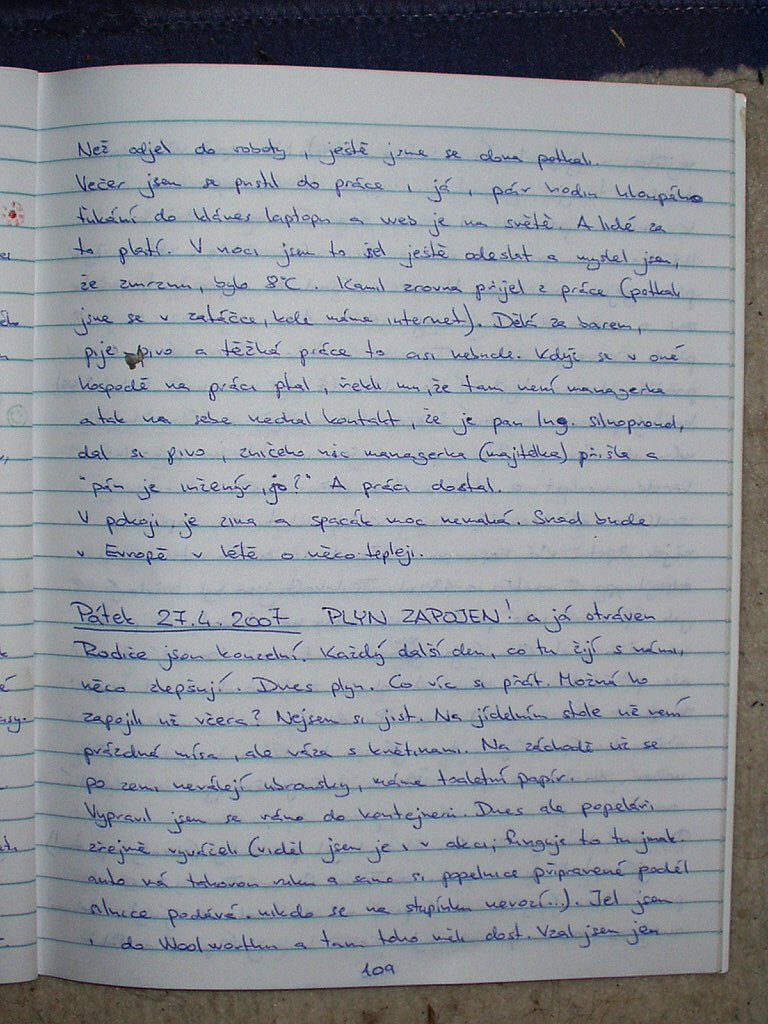 Než odjel do roboty, ještě jsme se doma potkali.
Večer jsem se pustil do práce, já, pár hodin hloupého
ťukání do kláves laptopu a web je na světě. A lidé za
to platí. V noci jsem to jel ještě odeslat a myslel jsem,
že zmrznu, bylo 8°C. Kamil zrovna přijel z práce (potkali
jsme se v zatáčce, kde máme internet). Dělá za barem,
pije pivo a těžká práce to asi nebude. Když se v oné
hospodě na práci ptal, řekli mu, že tam není managerka
a tak na sebe nechal kontakt, že je pan Ing. silnoproud,
dal si pivo, zničeho nic managerka (majitelka) přišla a
"pán je inženýr, jo?" A práci dostal.
V pokoji je zima a spacák moc nemaká. Snad bude
v Evropě v létě o něco tepleji.
Pátek 27.4.2007 PLYN ZAPOJEN! a já otráven
Rodiče jsou kouzelní. Každý další den, co tu žijí s námi,
něco zlepšují. Dnes plyn. Co víc si přát. Možná ho
zapojili už včera? Nejsem si jist. Na jídelním stole už není
prázdná mísa, ale váza s květinami. Na záchodě už se
po zemi neválejí ubrousky, máme toaletní papír.
Vypravil jsem se ráno do kontejneru. Dnes ale popeláři
zřejmě vyváželi (viděl jsem je i v akci, funguje to tu jinak.
auto má takovou ruku a samo si popelnice připravené podél
silnice podává. nikdo se na stupínku nevozí...). Jel jsem
i do Woolworthu a tam toho měli dost. Vzal jsem jen
109